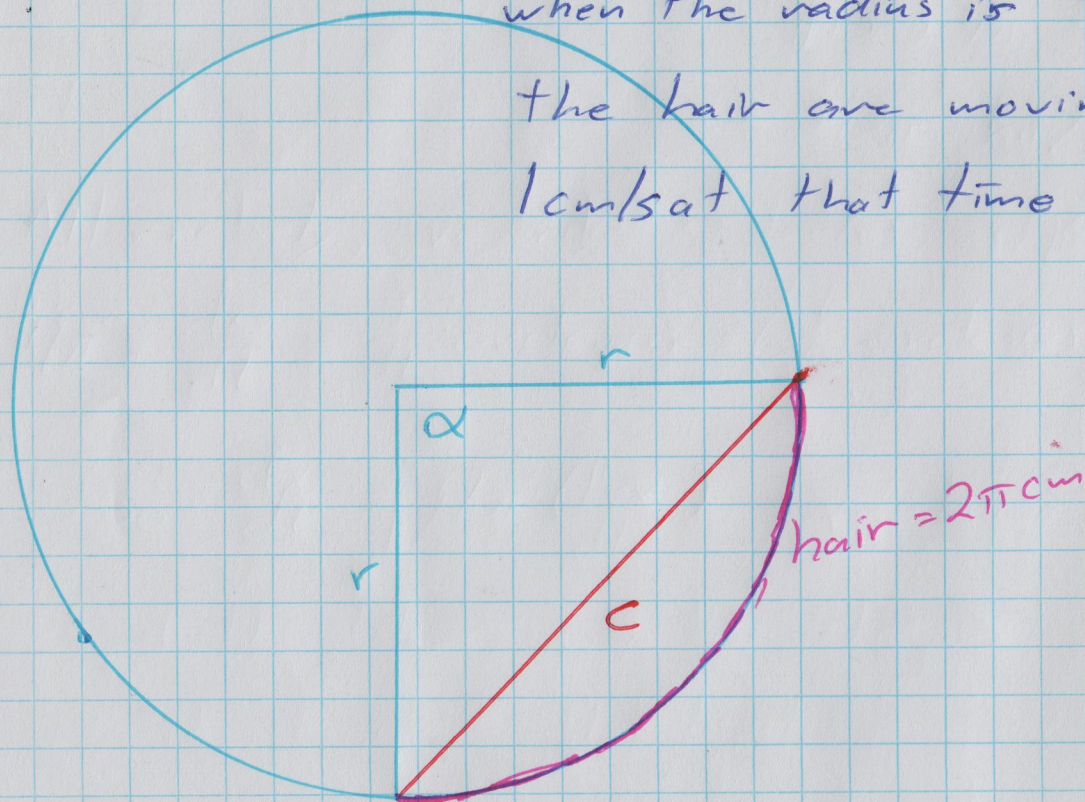 when the radius is
the hair are movin
1cm/sat that time
r
α
hair = 2π cm
r
c